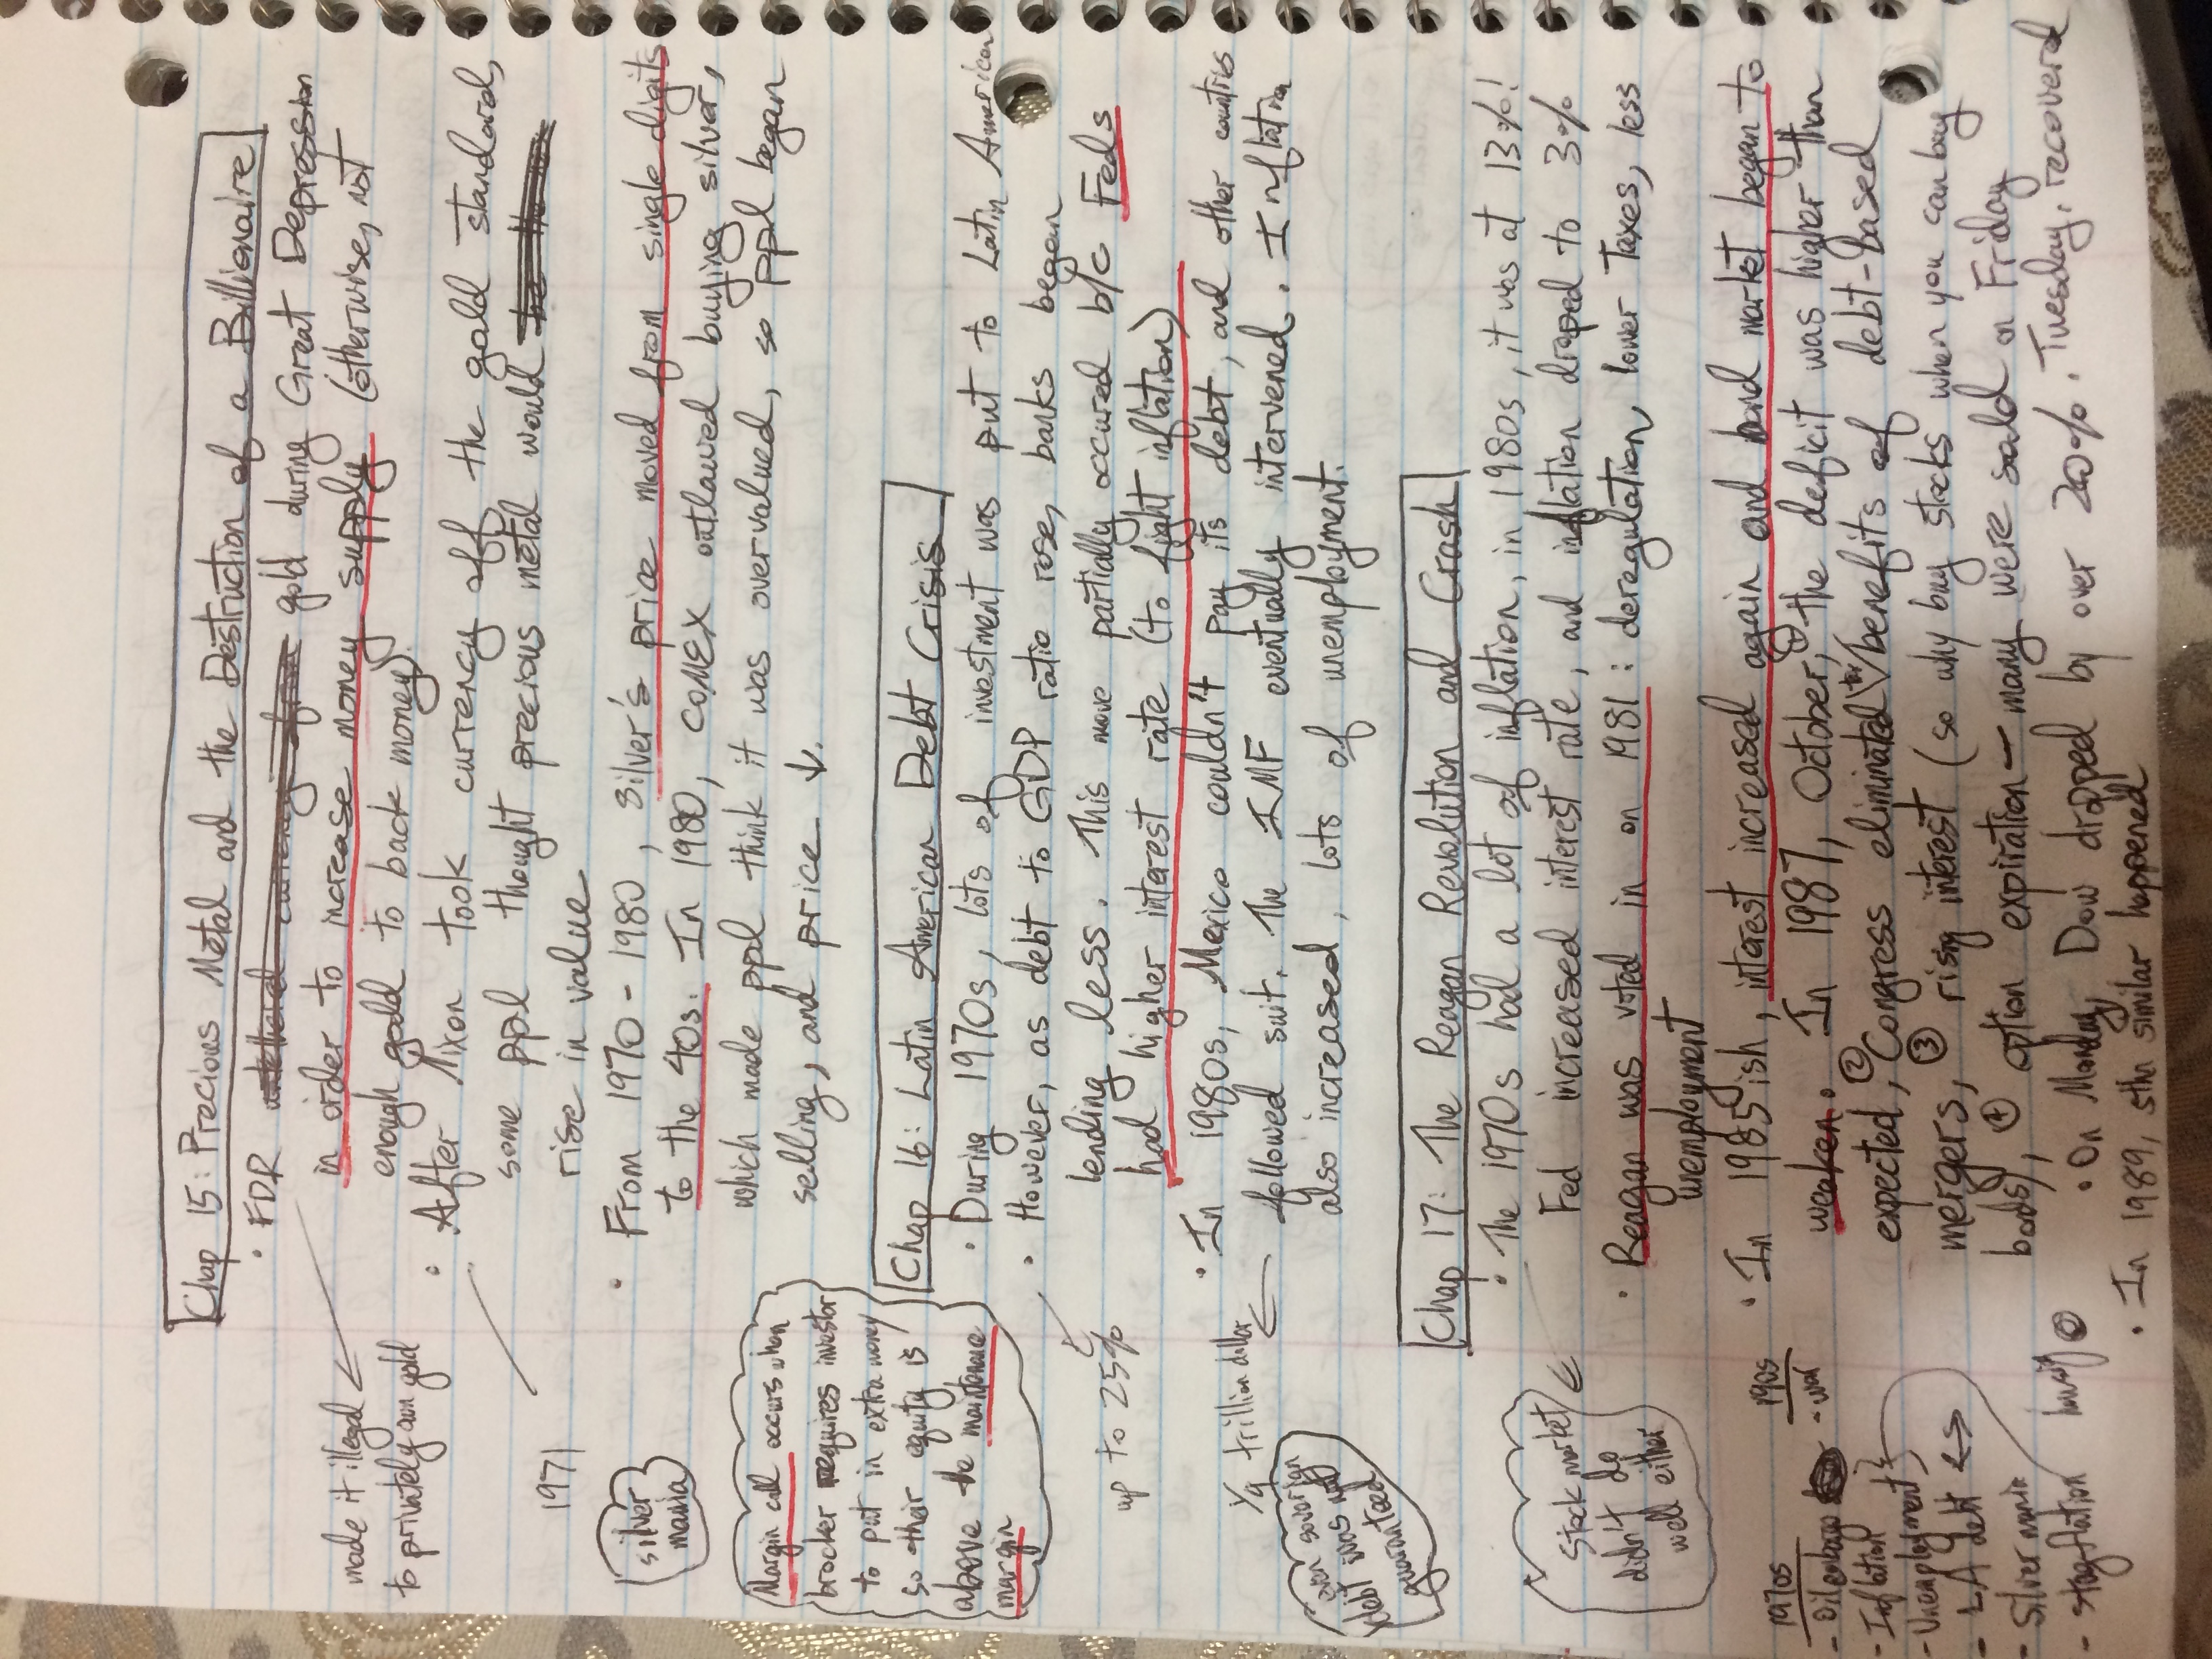 Chap 15: Precious Metal and the Destruction of a Billionaire
• FDR untethered currency from gold during Great Depression
in order to increase money supply (otherwise, not
enough gold to back money).
made it illegal
to privately own gold
• After Nixon took currency off the gold standard,
some ppl thought precious metal would be the
rise in value
1971
• From 1970 - 1980, silver's price moved from single digits
to the 40s. In 1980, COMEX outlawed buying silver,
which made ppl think it was overvalued, so ppl began
selling, and price ↓.
silver
mania
Margin call occurs when
brocker requires investor
to put in extra money
so their equity is
above the maintenance
margin
Chap 16: Latin American Debt Crisis
• During 1970s, lots of investment was put to Latin American
• However, as debt to GDP ratio rose, banks began
lending less. This move partially occured b/c Feds
had higher interest rate (to fight inflation)
up to 25%
• In 1980s, Mexico couldn't pay its debt, and other countries
followed suit. The IMF eventually intervened. Inflation
also increased, lots of unemployment.
trillion dollar
even soverign
debt was not
guaranteed
Chap 17: The Reagan Revolution and Crash
• The 1970s had a lot of inflation, in 1980s, it was at 13%!
Fed increased interest rate, and inflation droped to 3%
Stock market
didn't do
well either
• Reagan was voted in on 1981: deregulation, lower taxes, less
unemployment
• In 1985ish, interest increased again and bond market began to
weaken. In 1987, October, ① the deficit was higher than
expected, ② Congress eliminated tax benefits of debt-based
mergers, ③ rising interest (so why buy stocks when you can buy
bods), ④ option expiration — many were sold on Friday
• On Monday, Dow dropped by over 20%. Tuesday, recovered
• In 1989, sthn similar happened
1970s
- Oil embargo
- Inflation
- Unemployment
- LA debt
- Silver mania
- stagflation
190s
- war
housing